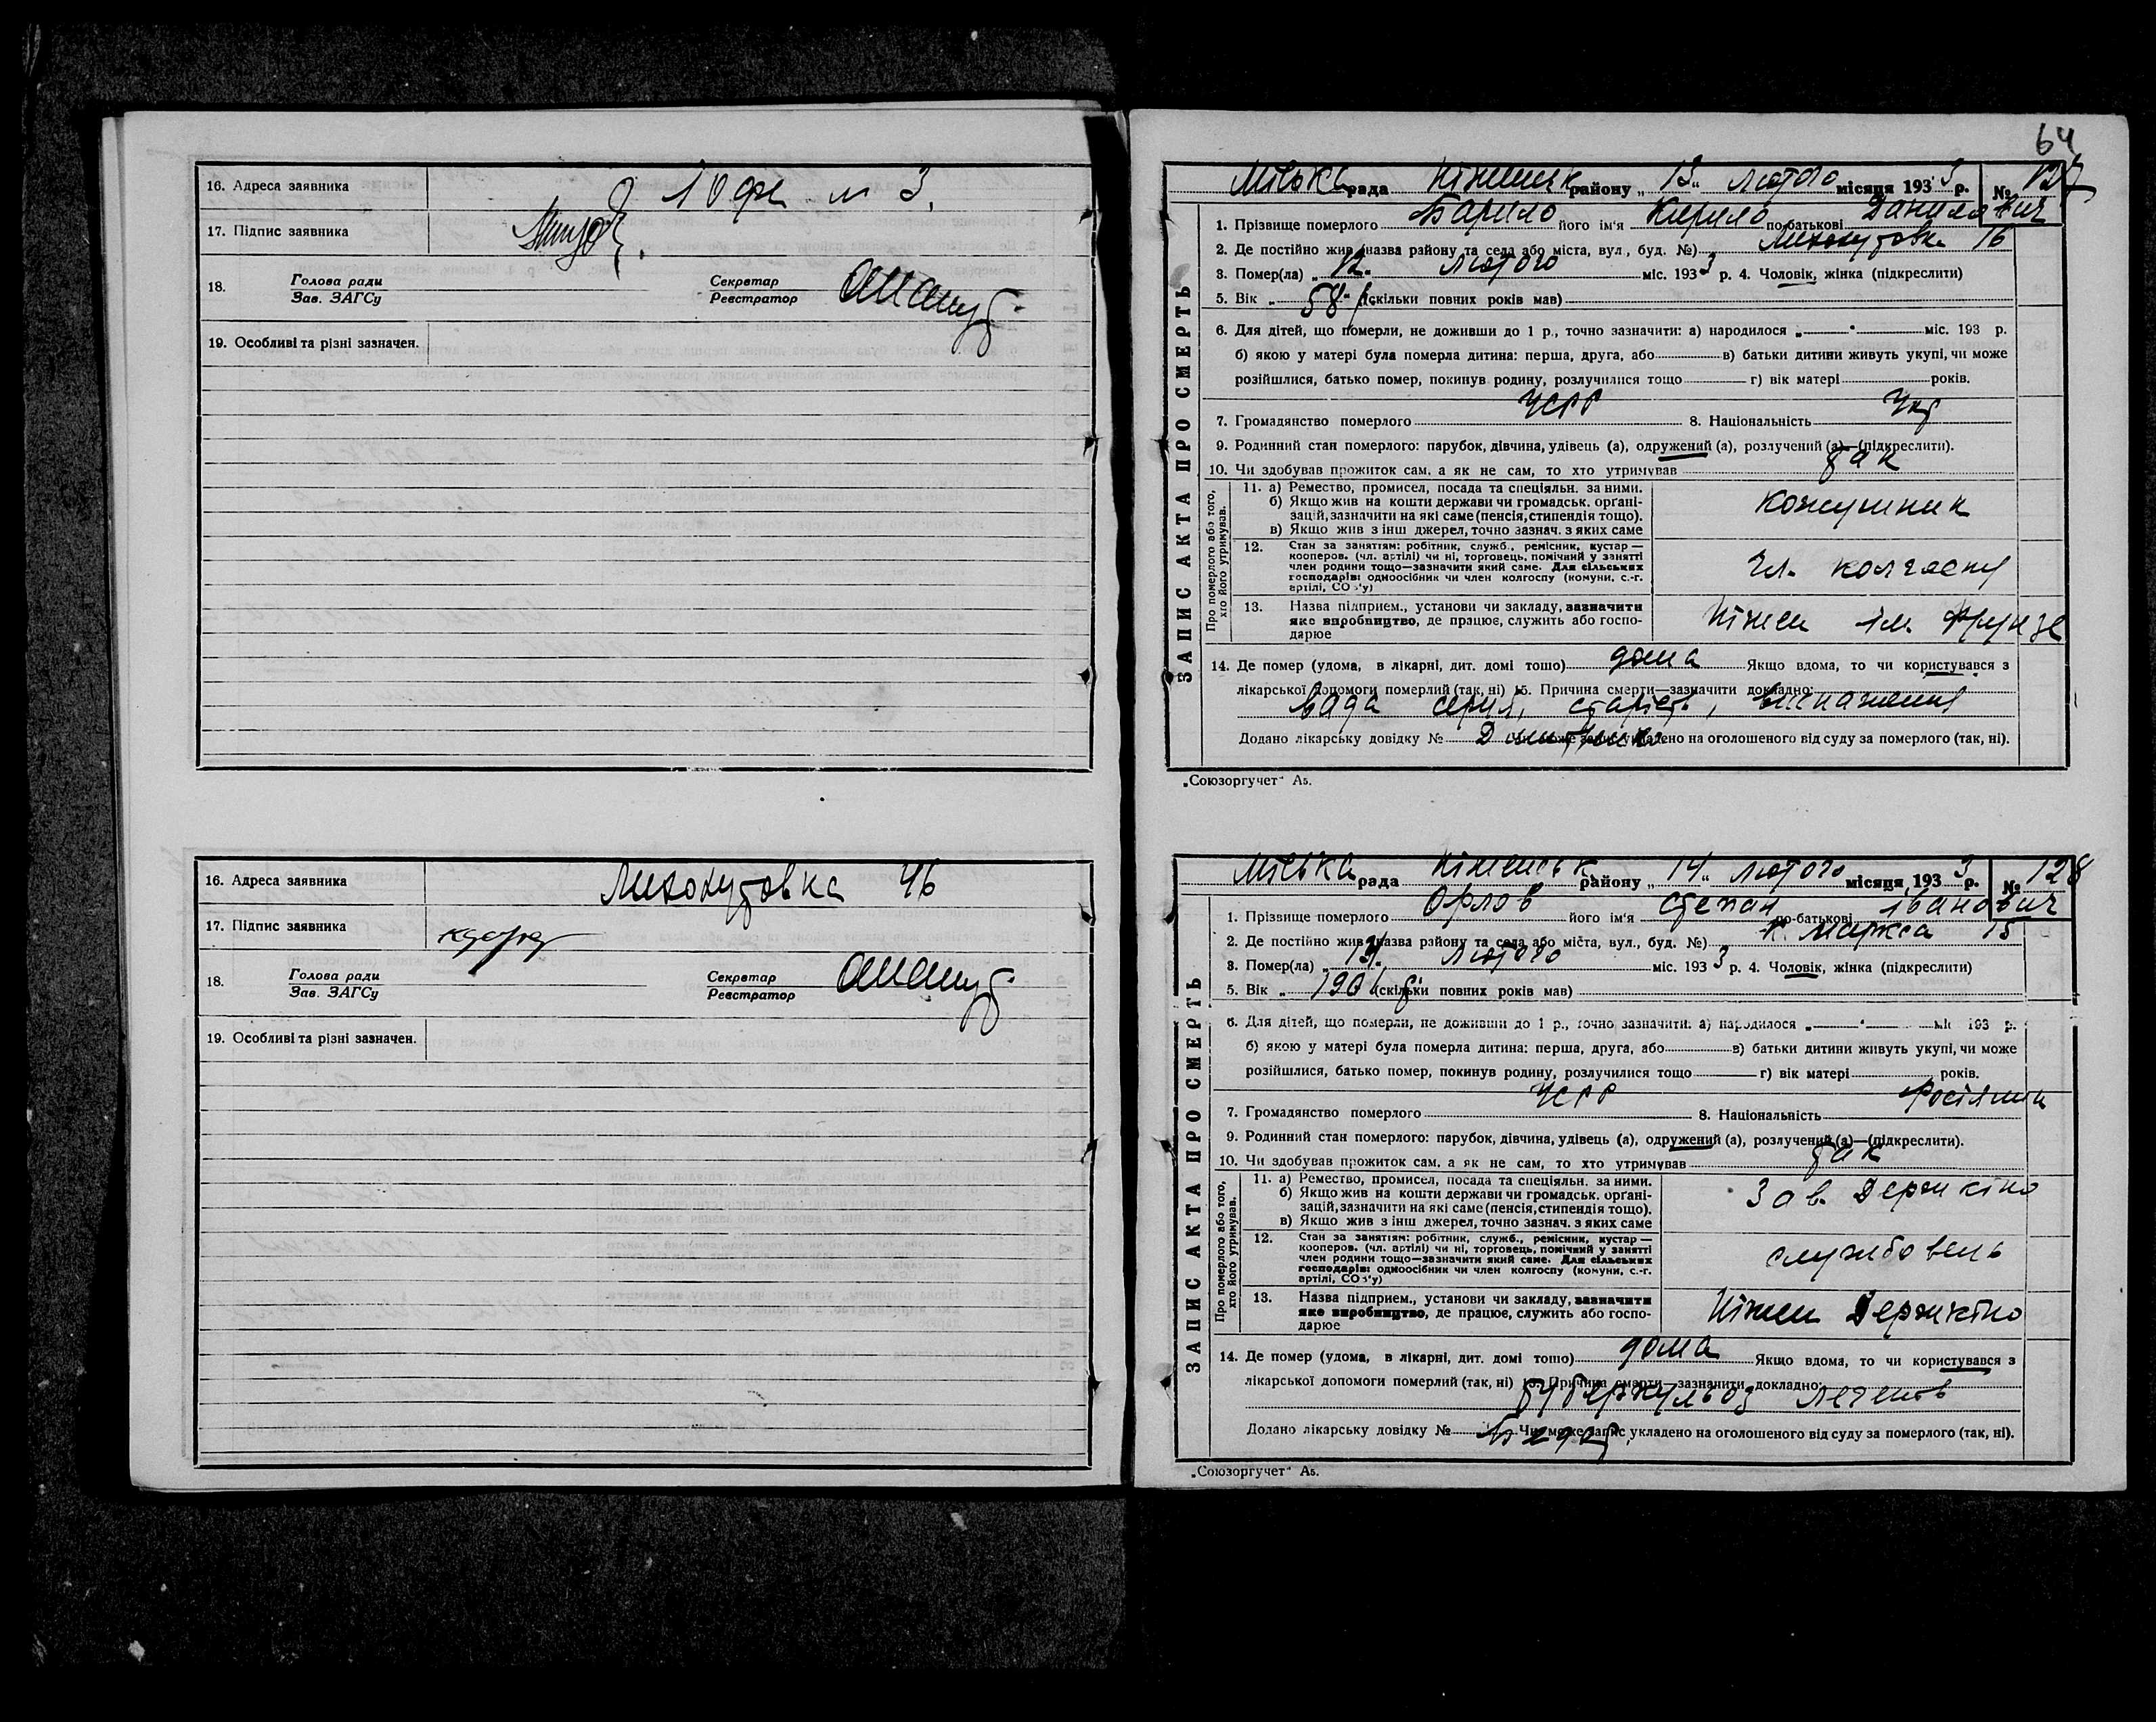 16. Адреса заявника 10 фев м 3.
17. Підпис заявника
18. Голова ради Зав. ЗАГСу Секретар Реєстратор
19. Особливі та різні зазначен.
16. Адреса заявника 46
17. Підпис заявника
18. Голова ради Зав. ЗАГСу Секретар Реєстратор
19. Особливі та різні зазначен.
64
ЗАПИС АКТА ПРО СМЕРТЬ
Міська рада Ніженськ району „13" лютого місяця 1933 р. № 127
1. Прізвище померлого Барило його ім'я Кирило по-батькові Данилович
2. Де постійно жив (назва району та села або міста, вул., буд. №) 16
3. Помер(ла) „12" лютого міс. 1933 р. 4. Чоловік, жінка (підкреслити)
5. Вік „58" (скільки повних років мав)
6. Для дітей, що померли, не доживши до 1 р., точно зазначити: а) народилося „ " міс. 193 р.
б) якою у матері була померла дитина: перша, друга, або в) батьки дитини живуть укупі, чи може
розійшлися, батько помер, покинув родину, розлучилися тощо г) вік матері років.
7. Громадянство померлого УСРР 8. Національність Укр
9. Родинний стан померлого: парубок, дівчина, удівець (а), одружений (а), розлучений (а)—(підкреслити).
10. Чи здобував прожиток сам, а як не сам, то хто утримував так
Про померлого або того, хто його утримував.
11. а) Ремество, промисел, посада та спеціяльн. за ними.
б) Якщо жив на кошти держави чи громадськ. орґані-
зацій, зазначити на які саме (пенсія, стипендія тощо).
в) Якщо жив з інш джерел, точно зазнач. з яких саме
кожушник
12. Стан за заняттям: робітник, служб., ремісник, кустар —
кооперов. (чл. артілі) чи ні, торговець, помічний у занятті
член родини тощо—зазначити який саме. Для сільських
господарів: одноосібник чи член колгоспу (комуни, с.-г.
артілі, СОЗ'у)
Чл. колгоспу
13. Назва підприєм., установи чи закладу, зазначити
яке виробництво, де працює, служить або госпо-
дарює
Ніжен ім. Фрунзе
14. Де помер (удома, в лікарні, дит. домі тощо) дома Якщо вдома, то чи користувався з
лікарської допомоги померлий (так, ні) 15. Причина смерти—зазначити докладно:
вада серця, старість, виснаження
Додано лікарську довідку № Чи може запис укладено на оголошеного від суду за померлого (так, ні).
„Союзоргучет" А5.
ЗАПИС АКТА ПРО СМЕРТЬ
Міська рада Ніженськ району „14" лютого місяця 1933 р. № 128
1. Прізвище померлого Орлов його ім'я Степан по-батькові Іванович
2. Де постійно жив (назва району та села або міста, вул., буд. №) К. Маркса 15
3. Помер(ла) лютого міс. 1933 р. 4. Чоловік, жінка (підкреслити)
5. Вік „ (скільки повних років мав)
6. Для дітей, що померли, не доживши до 1 р., точно зазначити: а) народилося „ " міс 193 р.
б) якою у матері була померла дитина: перша, друга, або в) батьки дитини живуть укупі, чи може
розійшлися, батько помер, покинув родину, розлучилися тощо г) вік матері років.
7. Громадянство померлого УСРР 8. Національність Росіянин
9. Родинний стан померлого: парубок, дівчина, удівець (а), одружений (а), розлучений (а)—(підкреслити).
10. Чи здобував прожиток сам, а як не сам, то хто утримував так
Про померлого або того, хто його утримував.
11. а) Ремество, промисел, посада та спеціяльн. за ними.
б) Якщо жив на кошти держави чи громадськ. орґані-
зацій, зазначити на які саме (пенсія, стипендія тощо).
в) Якщо жив з інш джерел, точно зазнач. з яких саме
Зав. Держкіно
12. Стан за заняттям: робітник, служб., ремісник, кустар —
кооперов. (чл. артілі) чи ні, торговець, помічний у занятті
член родини тощо—зазначити який саме. Для сільських
господарів: одноосібник чи член колгоспу (комуни, с.-г.
артілі, СОЗ'у)
службовець
13. Назва підприєм., установи чи закладу, зазначити
яке виробництво, де працює, служить або госпо-
дарює
Ніжен Держкіно
14. Де помер (удома, в лікарні, дит. домі тощо) дома Якщо вдома, то чи користувався з
лікарської допомоги померлий (так, ні) 15. Причина смерти—зазначити докладно:
туберкульоз легенів
Додано лікарську довідку № Чи може запис укладено на оголошеного від суду за померлого (так, ні).
„Союзоргучет" А5.